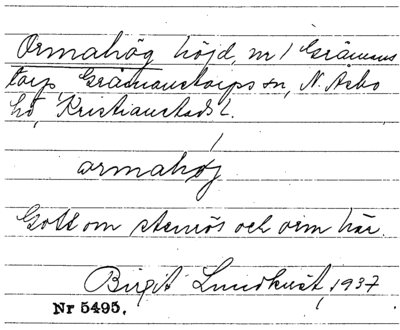 Ormahög höjd, nr 1 Gråmans
torp, Gråmanstorps sn, N. Åsbo
hd, Kristianstads l.
ormahög
Gott om stenrös och orm här.
Birgit Lundkvist, 1937
Nr 5495.